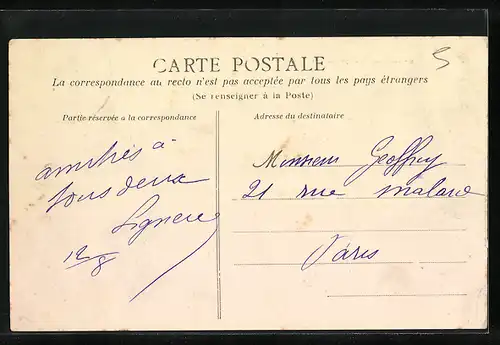 CARTE POSTALE
La correspondance au recto n'est pas acceptée par tous les pays étrangers
(Se renseigner à la Poste)
Partie réservée à la correspondance
Adresse du destinataire
5
amitiés à
tous deux
12/8
Monsieur Geoffroy
21 rue malar
Paris